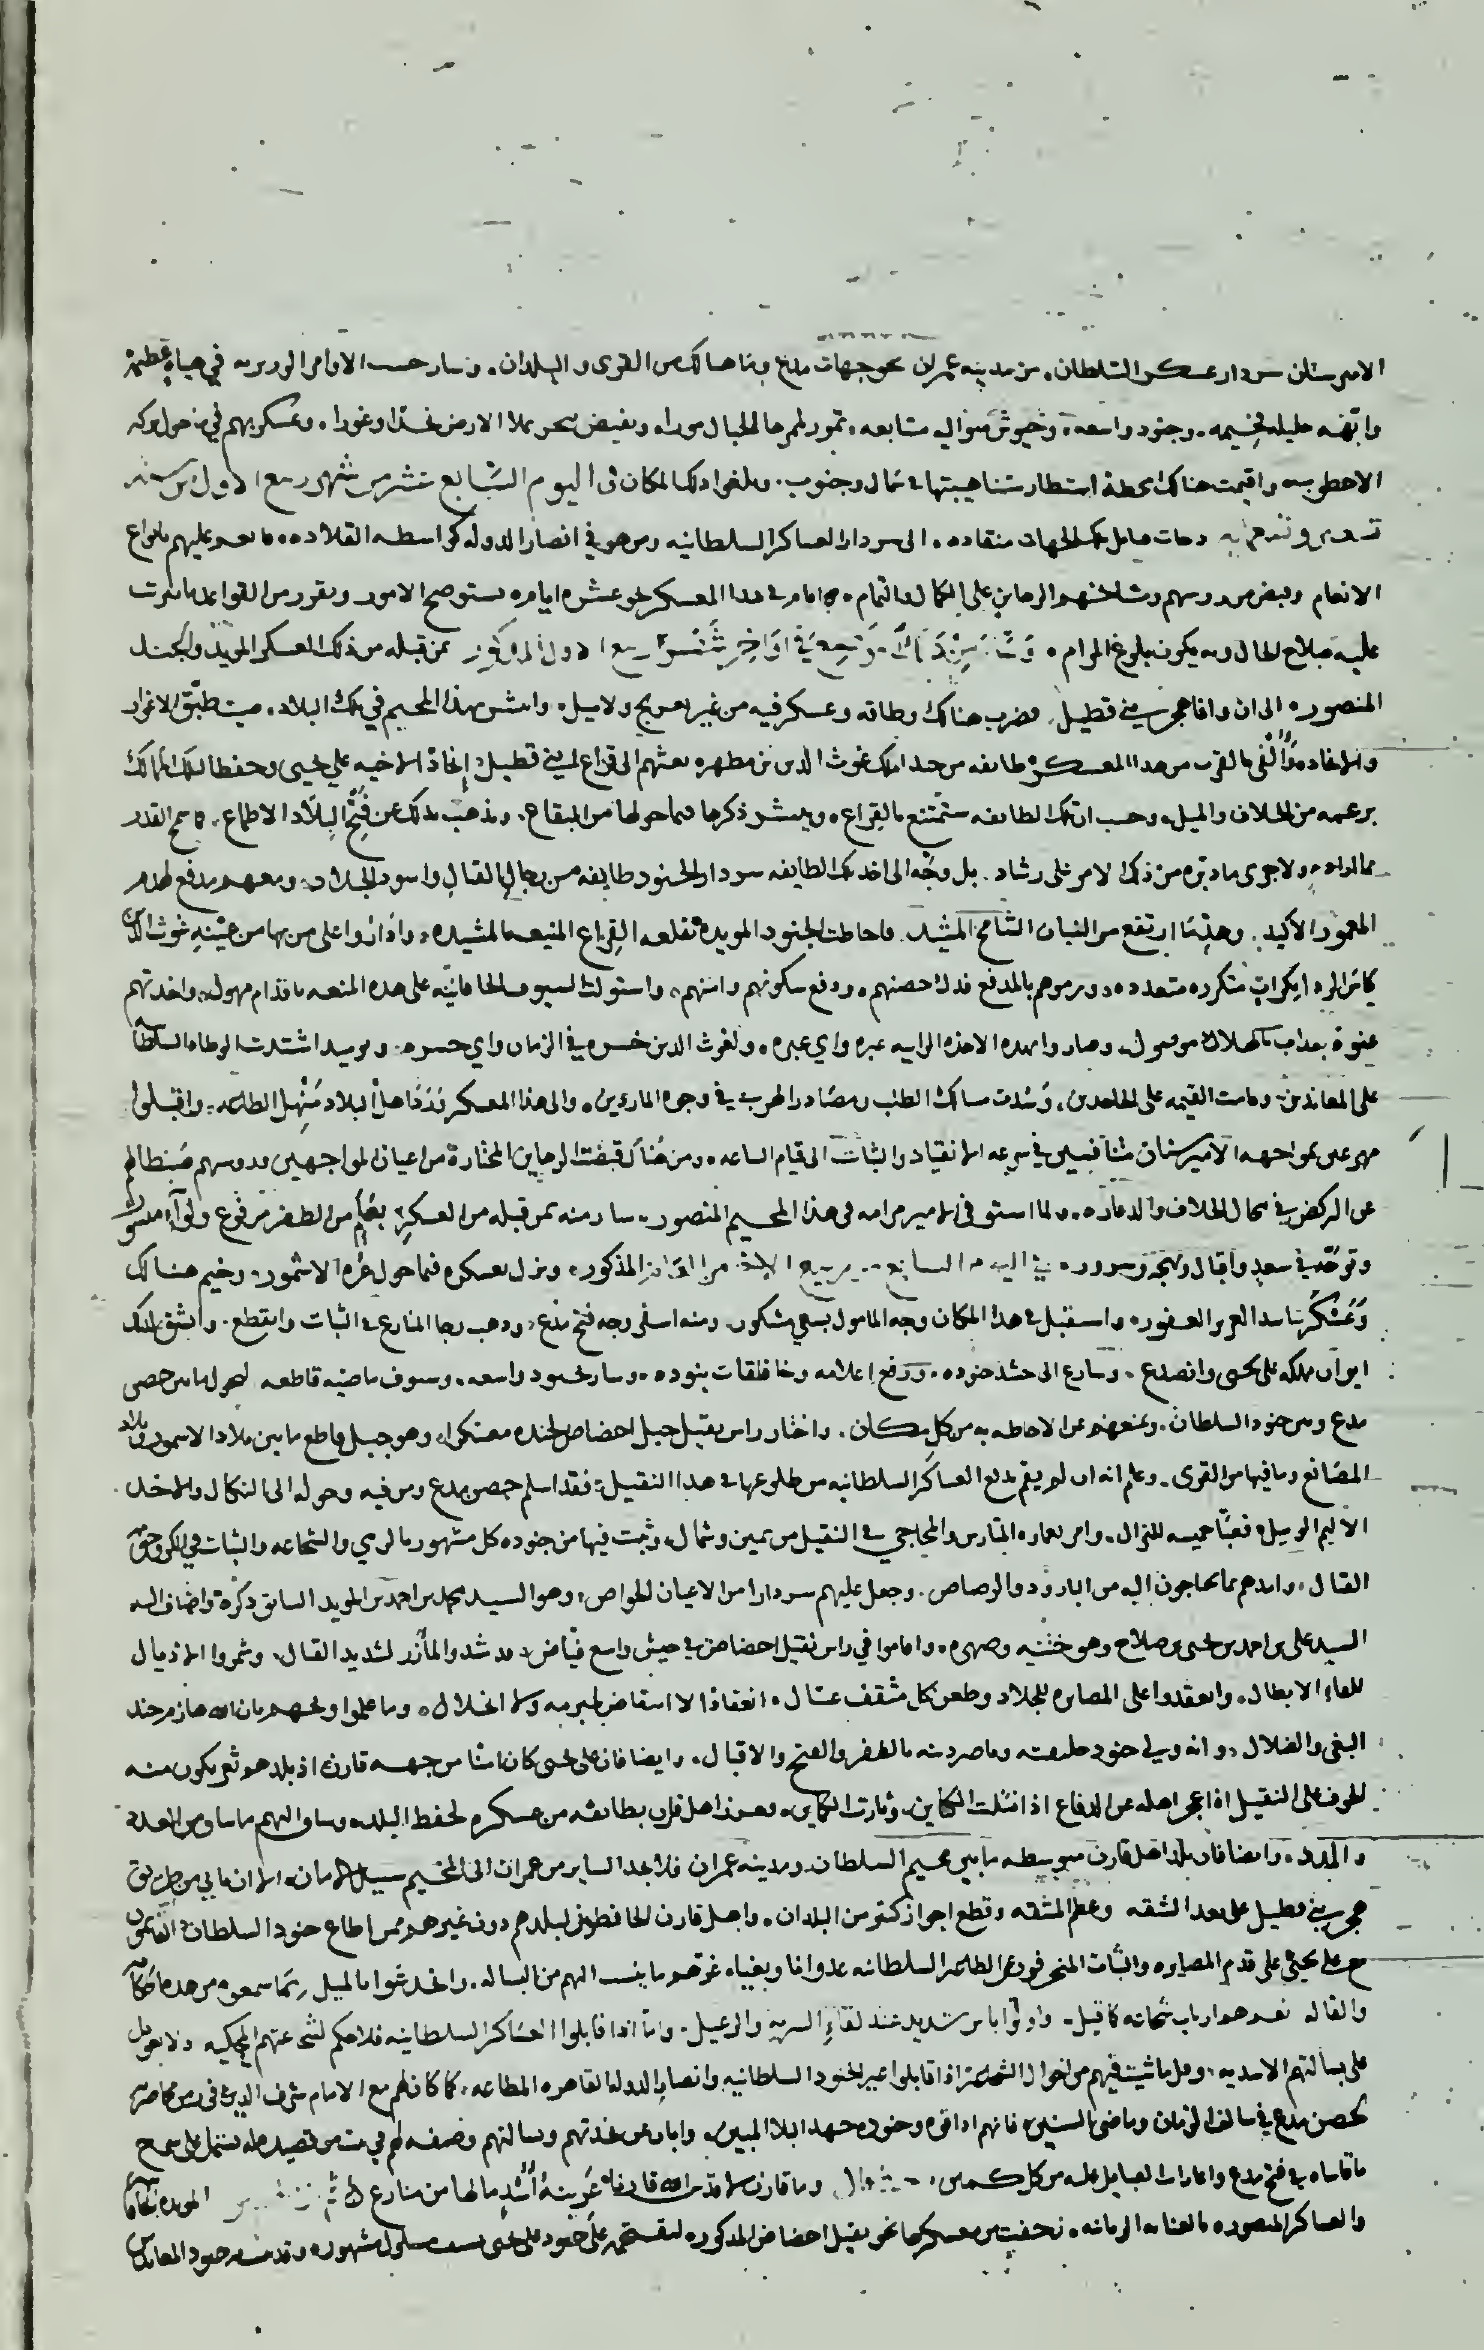 الامير سنان سردار عسكر السلطان من مدينه عمران نحو جهات مدع وما هنالك من القرى والبلدان وسار حسب الاوامر الوزيريه في هيأة عظيمة
وابهه جليله فخيمه وجنود واسعه وجيوش متواليه متتابعه تمور لمرها الجبال مورا وتفيض بحور تملا الارض نجدا وغورا وعسكر بهم في
واقيمت هناك محطة استطار شناهيبتها في شمال وجنوب وبلغوا ذلك المكان في اليوم السابع عشر من شهر ربيع الاول من سنه
تسعين وتسعمايه قبايل تلك الجهات منقاده الى سردار العساكر السلطانيه ومن هو في انصار الدوله كواسطه القلاده فانعم عليهم بانواع
الانعام وقبض من روسهم ومشايخهم الرهاين على الكمال والتمام واقام في هذا المعسكر نحو عشره ايام يستوضح الامور ويقرر من القواعد ما
عليه صلاح الحال وبه يكون بلوغ المرام في اواخر شهر ربيع الاول المذكور بمن قبله من ذلك العسكر المويد والجند
المنصور الى ان وافا هجر بني قطيل فضرب هناك وطاقه وعسكر فيه من غير تعريج ولا ميل وانتشر بهذا المخيم في تلك البلاد صيت طبق الاغوار
والانجاد والفى بالقرب من هذا المعسكر طايفه من جند الملك غوث الدين بن مطهر بعثهم الى قراع لبني قطيل إنجادا لاخيه علي يحيى وحفظا لتلك الممالك
بزعمه من الخلاف والميل وحسب ان تلك الطايفه ستمتنع بالقراع وينتشر ذكرها فيما حولها من البقاع وتذهب بذلك عن فتح البلاد الاطماع فما سمح القدر
بما اراده ولا جرى ما دبره من ذلك الامر على رشاد بل وجه الى اخذ تلك الطايفه سردار الجنود طايفه من رجال القتال واسود الجلاد ومعهم مدفع لهدم
المعمور الاكيد وهدّ ما ارتفع من البنيان الشامخ المشيد فاحاطت الجنود المويده بقلعه القراع المنيعه المشيده وداروا على من بها من عينه غوث الدين
كاس الردا بكرات متكرره متعدده ورموهم بالمدفع فدك حصنهم ورفع سكونهم وامنهم واستولت السيوف الخاقانيه على هذه المنعه باقدام مهوله واخذتهم
عنوة بعذاب بالهلاك موصول وصار وا بهذه الاخذه الرابيه عبره واي عبره ولغوث الدين خسره في الزمان واي حسره ويوميذ اشتدت الوطاه السلطانيه
على المعاندين وقامت القيمه على الجاحدين وسدت مسالك الطلب ومصادر الهرب في وجوه الماردين والى هذا المعسكر اهل البلاد الطاعه واقبلوا
مهرعين لمواجهه الامير سنان متنافسين في سرعه الانقياد والثبات الى قيام الساعه ومن هناك قبضت الرهاين المختارة من اعيان المواجهين وروسهم ضبطا لهم
عن الركض في مجال الخلاف والدعاره ولما استوفى الامير مرامه في هذا المخيم المنصور سار منه بمن قبله من العسكر بعلم من الظفر مرفوع ولوآء منشور
وتوجه في سعد واقبال وبهجة وسرور في اليوم السابع من ربيع الاخر من العام المذكور ونزل بعسكره فيما حول غره الاشمور وخيم هنالك
وعسكر واستقبل في هذا المكان وجه المامول بسعي مشكور ومنه اسفر وجه فتح مدع وذهب رجا المنازع في الثبات وانقطع وانشق لذلك
ايوان مملكه علي يحيى وانصدع وسارع الى حشد جنوده ورفع اعلامه وخافقات بنوده وسار بحشود واسعه وسيوف ماضيه قاطعه ليحول ما بين حصن
مدع وبين جنود السلطان ويمنعهم عن الاحاطه به من كل مكان واختار راس نقيل جبل احضاض لجنده معتكرا وهو جبل قاطع ما بين بلاد الاشمور وبلاد
المصانع وما فيها من القرى وعلم انه ان لم يقم بدفع العساكر السلطانيه من طلوعها في هذا النقيل فقد اسلم حصن مدع ومن فيه وحوله الى النكال والاخذ
الاليم الوبيل فعبّا خميسه للنزال وامر بعماره المتارس والمحاجي في النقيل من يمين وشمال ورتب فيها من جنوده كل مشهور بالرمي والشجاعه والثبات في
القتال وامدهم بما يحتاجون اليه من البارود والرصاص وجعل عليهم سردارا من الاعيان الخواص وهو السيد محمد بن احمد بن المويد السابق ذكره واضاف اليه
السيد علي بن احمد بن يحيى بن صلاح وهو ختنه وصهره واقاموا في راس نقيل احضاض في جيش واسع فيّاض قد شدوا المأزر لشديد القتال وشمروا الاذيال
للقاء الابطال وانعقدوا على المصابره للجلاد وطعن كل مثقف عسّال انعقادا لا انتقاض لمبرمه ولا انحلال وما علموا ولا فهموا بان الله هازم جند
البغي والضلال وانه ولي جنود خليفته وناصر دينه بالظفر والفتح والاقبال وايضا فان علي يحيى كان خايفا من جهه قارن اذ بلد هو ثغر يكون منه
الخوف على النقيل اذا عجز اهله عن الدفاع اذا اقبلت الكتايب وثارت الكتايب فعزز اهل قارن بطايفه من عسكره لحفظ البلد وساق اليهم ما ساق من العدد
والمدد وايضا فان بلد اهل قارن متوسطه ما بين مخيم السلطان ومدينه عمران فلا يجد الساير من عمران الى المخيم سبيل الامان الا ان ياتي من طريق
هجر بني قطيل على بعد الشقه وعظم المشقه وقطع اجواز كثير من البلدان واهل قارن الحافظون لبلدهم دون غيرهم ممن اطاع جنود السلطان القايمون
مع علي يحيى على قدم المصابره والثبات المنحرفون عن الطاعه السلطانيه عدوانا وبغيا غرهم ما ينسب اليهم من البساله وانخدعوا بالميل بما سمعوه من هذه الحكايه
والقاله نعم هم ارباب شجاعه كما قيل واولوا باس شديد عند لقاء السريه والرعيل واما اذا قابلوا العساكر السلطانيه فلا حكم لشجاعتهم المحكيه ولا تعويل
على بسالتهم الاسديه وقل ما ثبت فيهم من احوال الشجاعه اذا قابلوا غير الجنود السلطانيه وانصار الدوله القاهره المطاعه كما كان لهم مع الامام شرف الدين في زمن محاصرته
لحصن مدع في سالف الزمان وماضي السنين فانهم اذاقوه وجنوده جهد البلا المبين وابان عن نجدتهم وبسالتهم وصفه لهم في بيت من قصيده له تشتمل على جميع
ما قاساه في فتح مدع وامارات القبايل عليه من كل كمين وما قارن لا قدس الله قارنا عرينة أُسْدٍ مالها من منازع المويده
والعساكر المنصوره بالعنايه الربانيه زحفت من معسكرها نحو نقيل احضاض المذكور لتقتحم على جنود علي يحيى بسيف مسلول مشهور